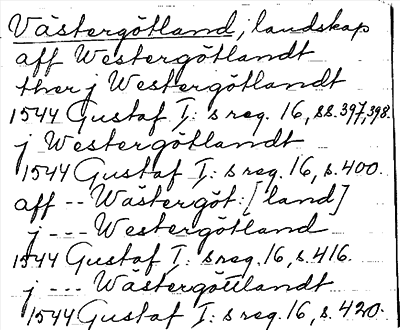 Västergötland, landskap
aff Westergötlandt
ther j Westergötlandt
1544 Gustaf I: s reg. 16, ss. 397, 398.
j Westergötlandt
1544 Gustaf I: s reg. 16, s. 400.
aff -- Wästergöt: [land]
j --- Westergötland
1544 Gustaf I: s reg. 16, s. 416.
j --- Wästergöttlandt
1544 Gustaf I: s reg. 16, s. 420.